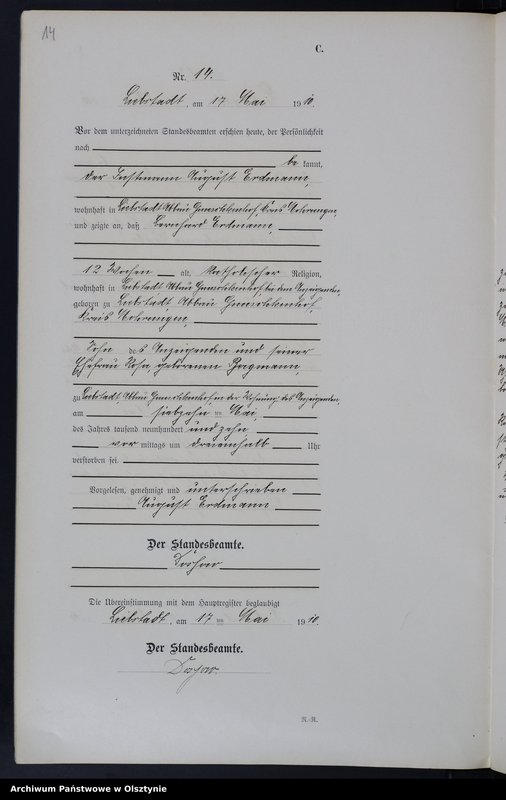 14
C.
Nr. 14.
Liebstadt, am 17 Mai 1910.
Vor dem unterzeichneten Standesbeamten erschien heute, der Persönlichkeit
nach
be kannt,
der Instmann August Erdmann,
wohnhaft in Liebstadt Abbau, Kreis Mohrungen,
und zeigte an, daß Bernhard Erdmann,
12 Wochen alt, katholischer Religion,
wohnhaft in Liebstadt Abbau bei dem Anzeigenden,
geboren zu Liebstadt Abbau
Kreis Mohrungen,
Sohn des Anzeigenden und seiner
Ehefrau Rosa, geborenen
zu Liebstadt, Abbau in der Wohnung des Anzeigenden,
am siebzehn ten Mai,
des Jahres tausend neunhundert und zehn
vor mittags um dreieinhalb Uhr
verstorben sei.
Vorgelesen, genehmigt und unterschrieben
August Erdmann
Der Standesbeamte.
Die Übereinstimmung mit dem Hauptregister beglaubigt
Liebstadt, am 17 ten Mai 1910.
Der Standesbeamte.
R.-R.
Archiwum Państwowe w Olsztynie